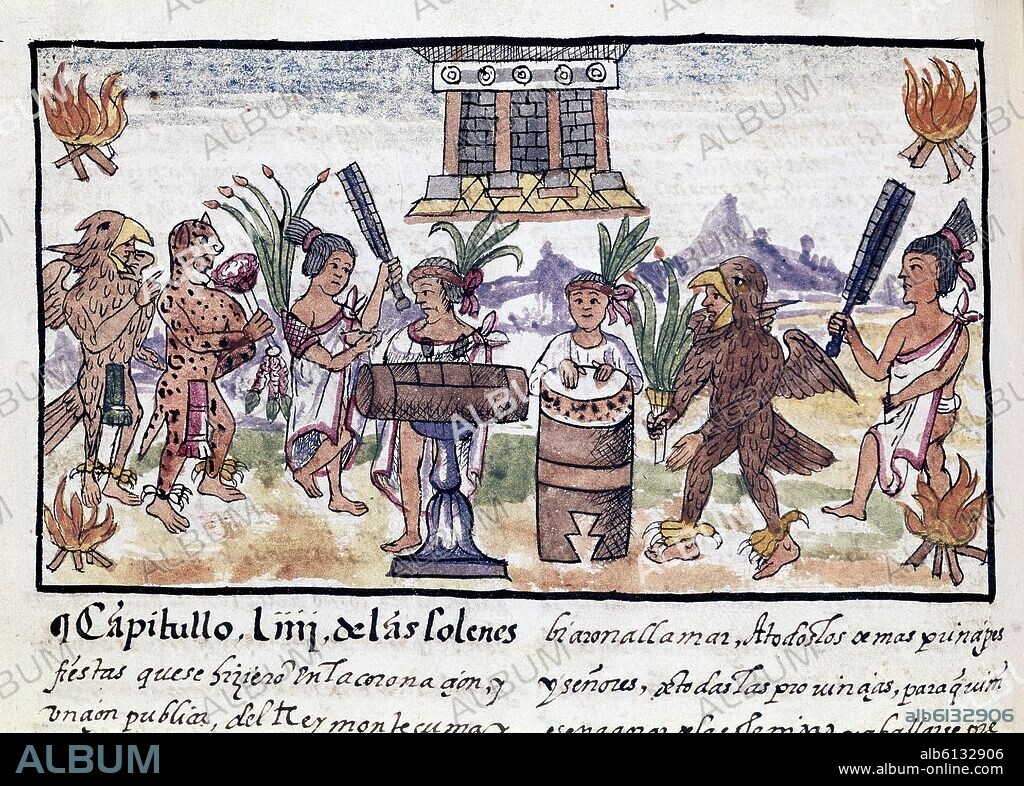 ¶ Capitullo. Liiij. de las solenes
fiestas que se hizierō en la corona çion, y
vnçion publica, del Rey montecuma y
biaron allamar, A todos los demas prinçipes
y señores, de todas las prouinçias, para que
alb6132906
ALBUM
alb6132906
www.album-online.com